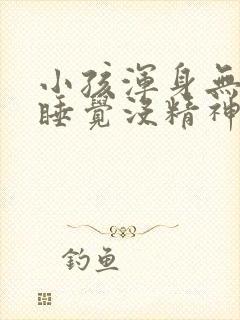 小孩渾身無
睡覺沒精神
釣魚